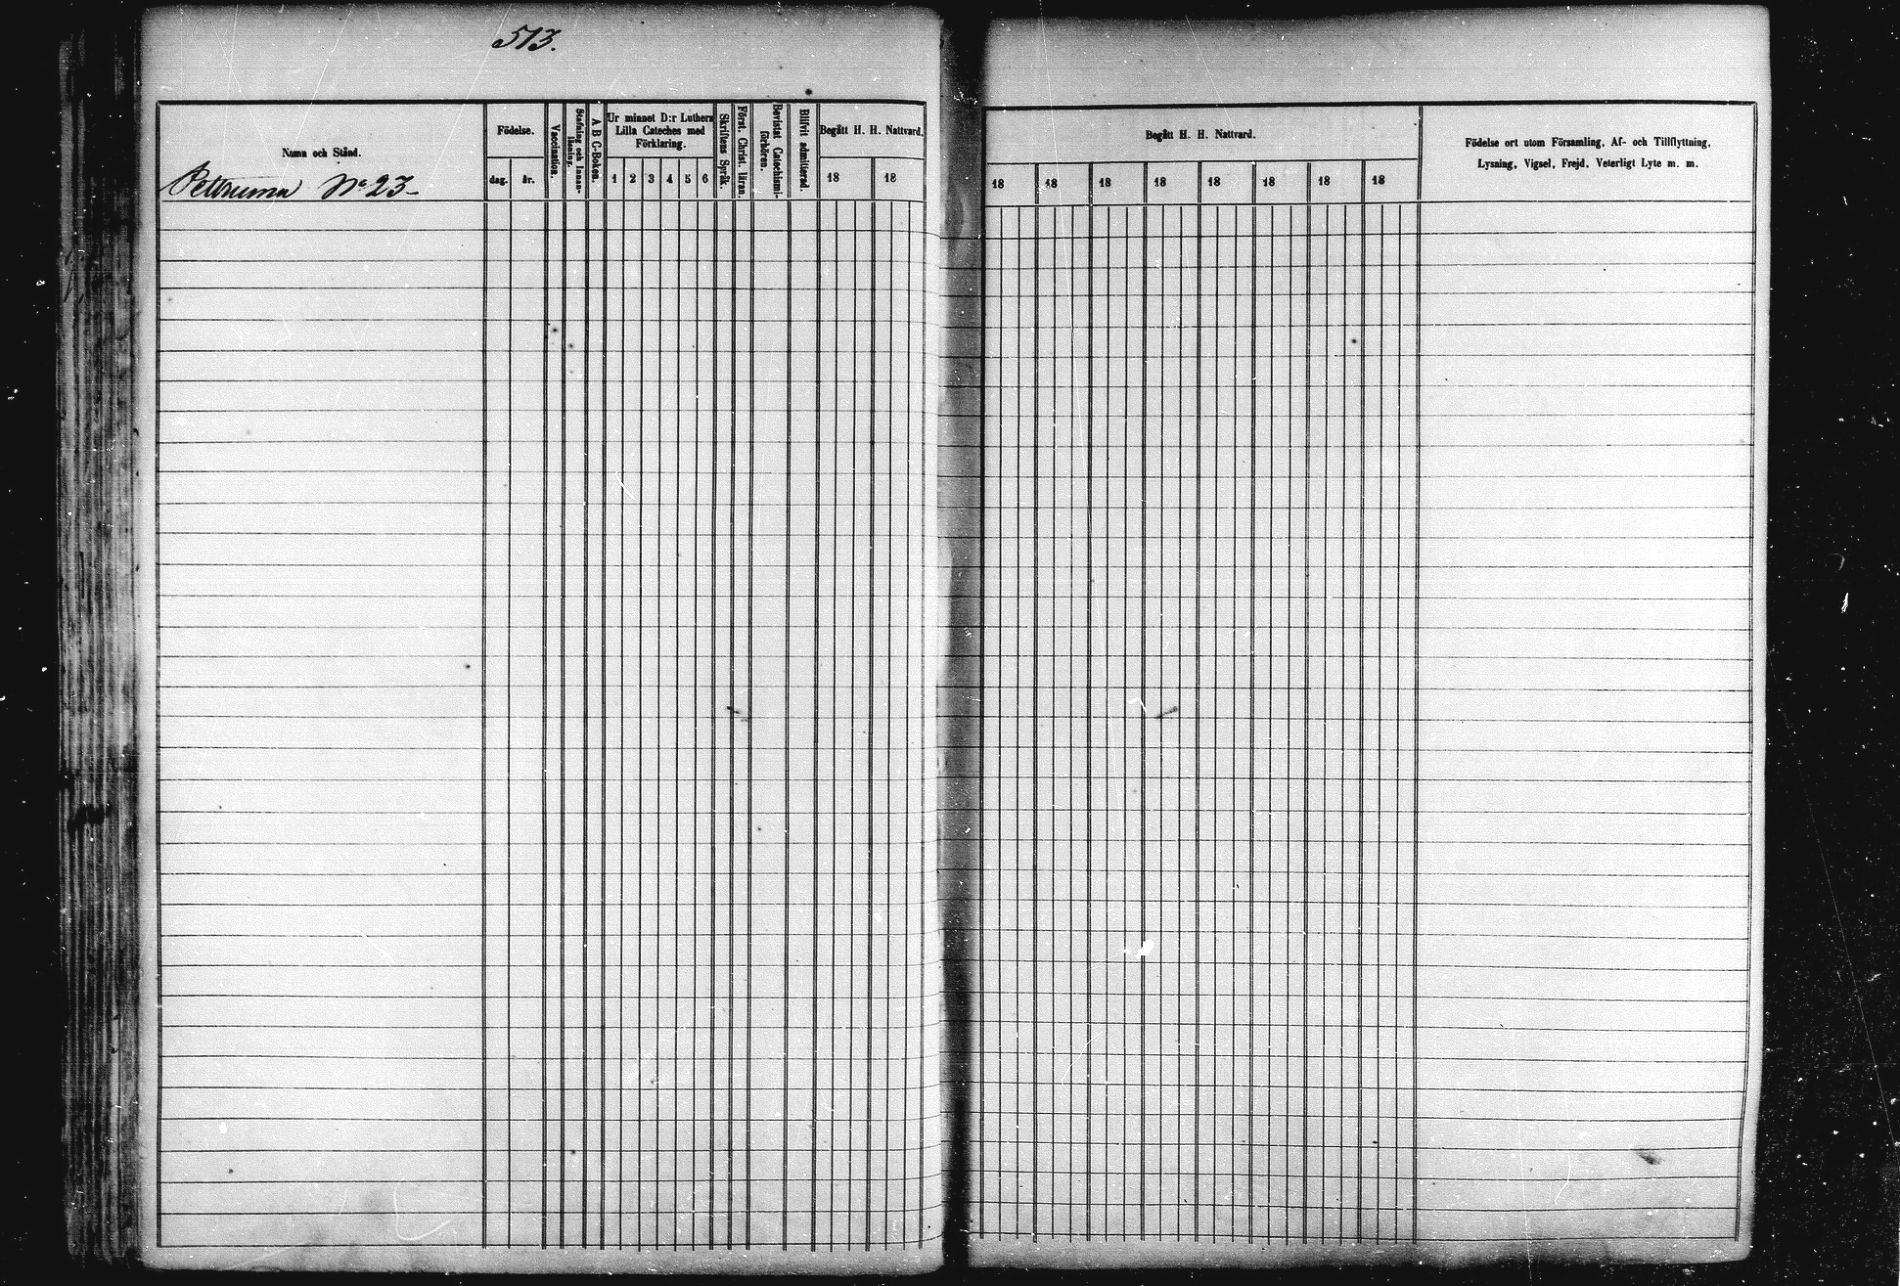 513.
Namn och Stånd.
Pettruma No 23-
Födelse.
dag. år.
Vaccination.
Stafning och Innan-
läsning.
A B C-Boken.
Ur minnet D:r Luthers
Lilla Cateches med
Förklaring.
1 2 3 4 5 6
Skriftens Språk.
Först. Christ. läran.
Bevistat Catechismi-
förhören.
Blifvit admitterad.
Begått H. H. Nattvard.
18 18
Begått H. H. Nattvard.
18 18 18 18 18 18 18 18
Födelse ort utom Församling, Af- och Tillflyttning,
Lysning, Vigsel, Frejd, Veterligt Lyte m. m.